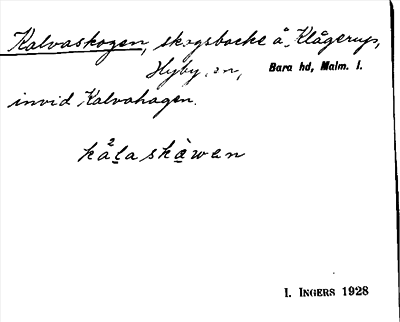 Kalvaskogen, skogsbacke å Klågerup,
Hyby sn, Bara hd, Malm. l.
invid Kalvahagen.
kålaskàwen
I. INGERS 1928